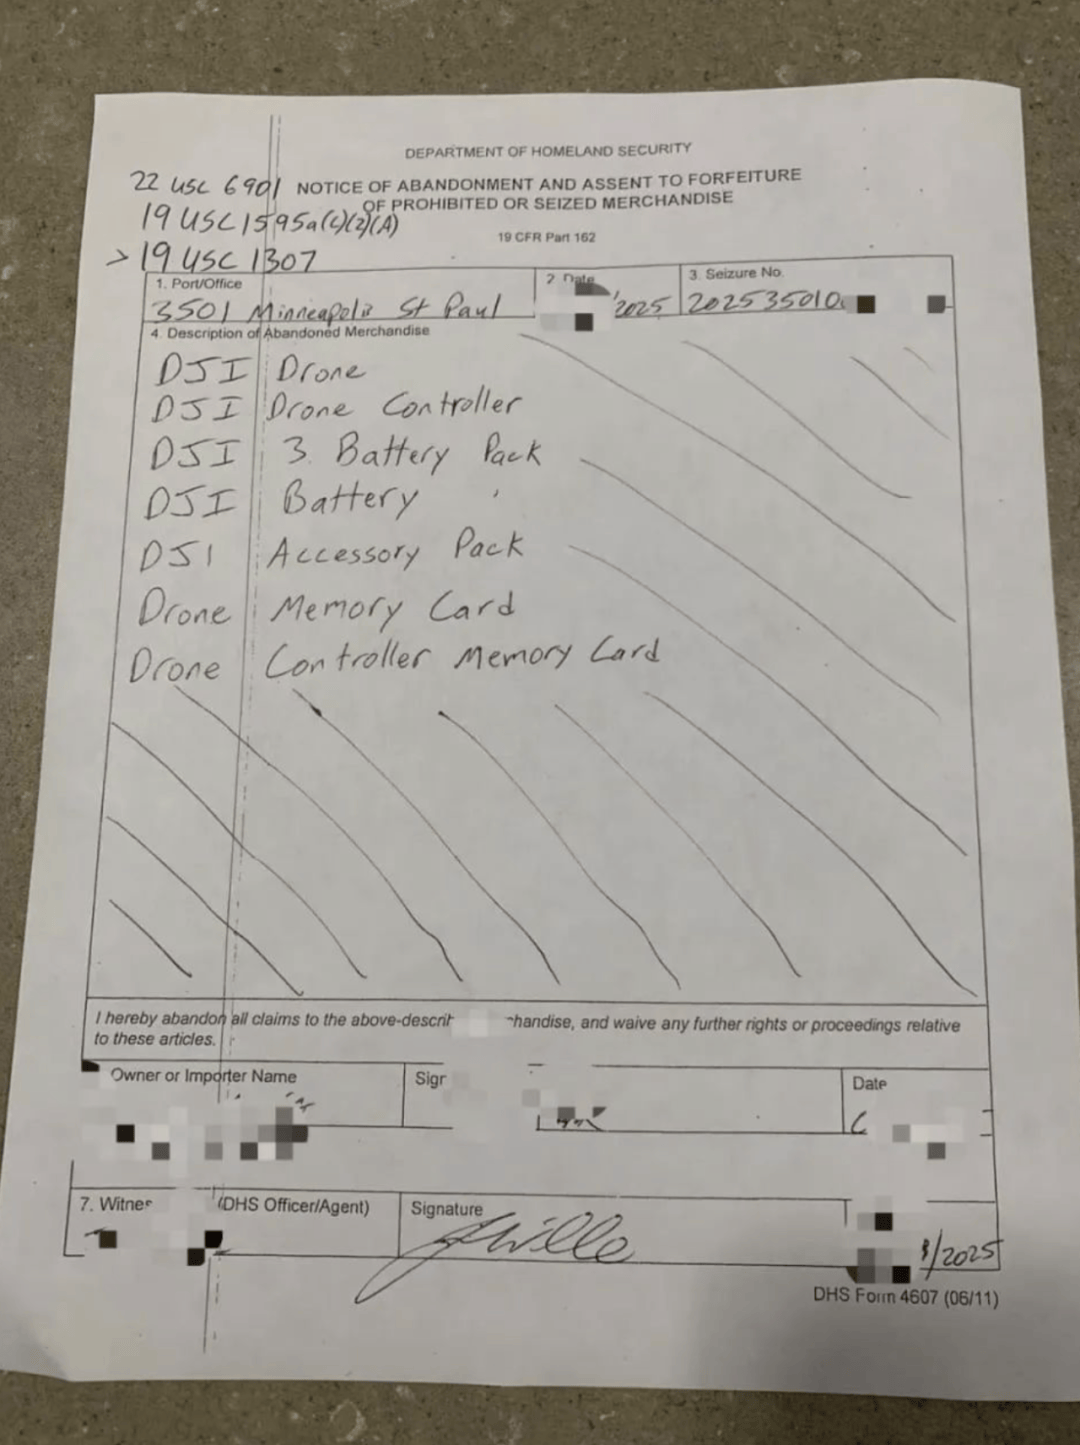 DEPARTMENT OF HOMELAND SECURITY
22 USC 6901
NOTICE OF ABANDONMENT AND ASSENT TO FORFEITURE
OF PROHIBITED OR SEIZED MERCHANDISE
19 USC 1595a(c)(2)(A)
19 CFR Part 162
> 19 USC 1307
1. Port/Office
2. Date
3. Seizure No.
3501 Minneapolis St Paul
/2025
202535010
4. Description of Abandoned Merchandise
DJI Drone
DJI Drone Controller
DJI 3. Battery Pack
DJI Battery
DJI Accessory Pack
Drone Memory Card
Drone Controller Memory Card
I hereby abandon all claims to the above-descri handise, and waive any further rights or proceedings relative
to these articles.
Owner or Importer Name
Sign
Date
7. Witnes (DHS Officer/Agent)
Signature
/2025
DHS Form 4607 (06/11)